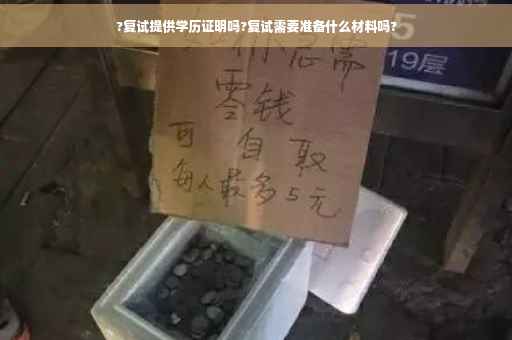 ?复试提供学历证明吗?复试需要准备什么材料吗?
你急需
零钱
可自取
每人最多5元
5
19层